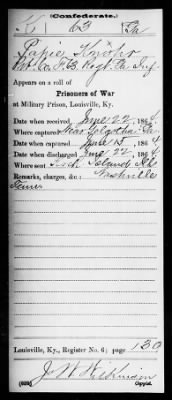 (Confederate.)
K 63 Ga
Co. F, 63 Regt. Ga. Inf.
Appears on a roll of
Prisoners of War
at Military Prison, Louisville, Ky.
Date when received, June 22, 186
Where captured, Near Golgotha, Ga
Date when captured, June 15, 186
Date when discharged, June 22, 186
Where sent, Rock Island Ills
Remarks, charges, &c.: Nashville
Tenn
Louisville, Ky., Register No. 6; page 130
Copyist.